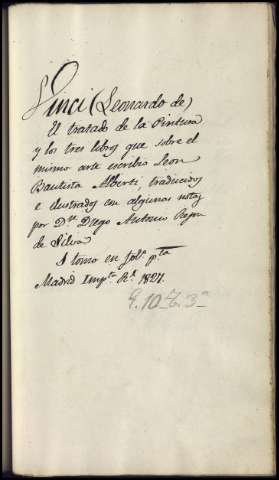 Vinci (Leonardo de)
El tratado de la Pintura
y los tres libros que sobre el
mismo arte escribio Leon
Bautista Alberti traducidos
e ilustrados con algunas notas
por Dn Diego Antonio Rejon
de Silva
1 tomo en fol.º pta
Madrid Impta Rl 1827.